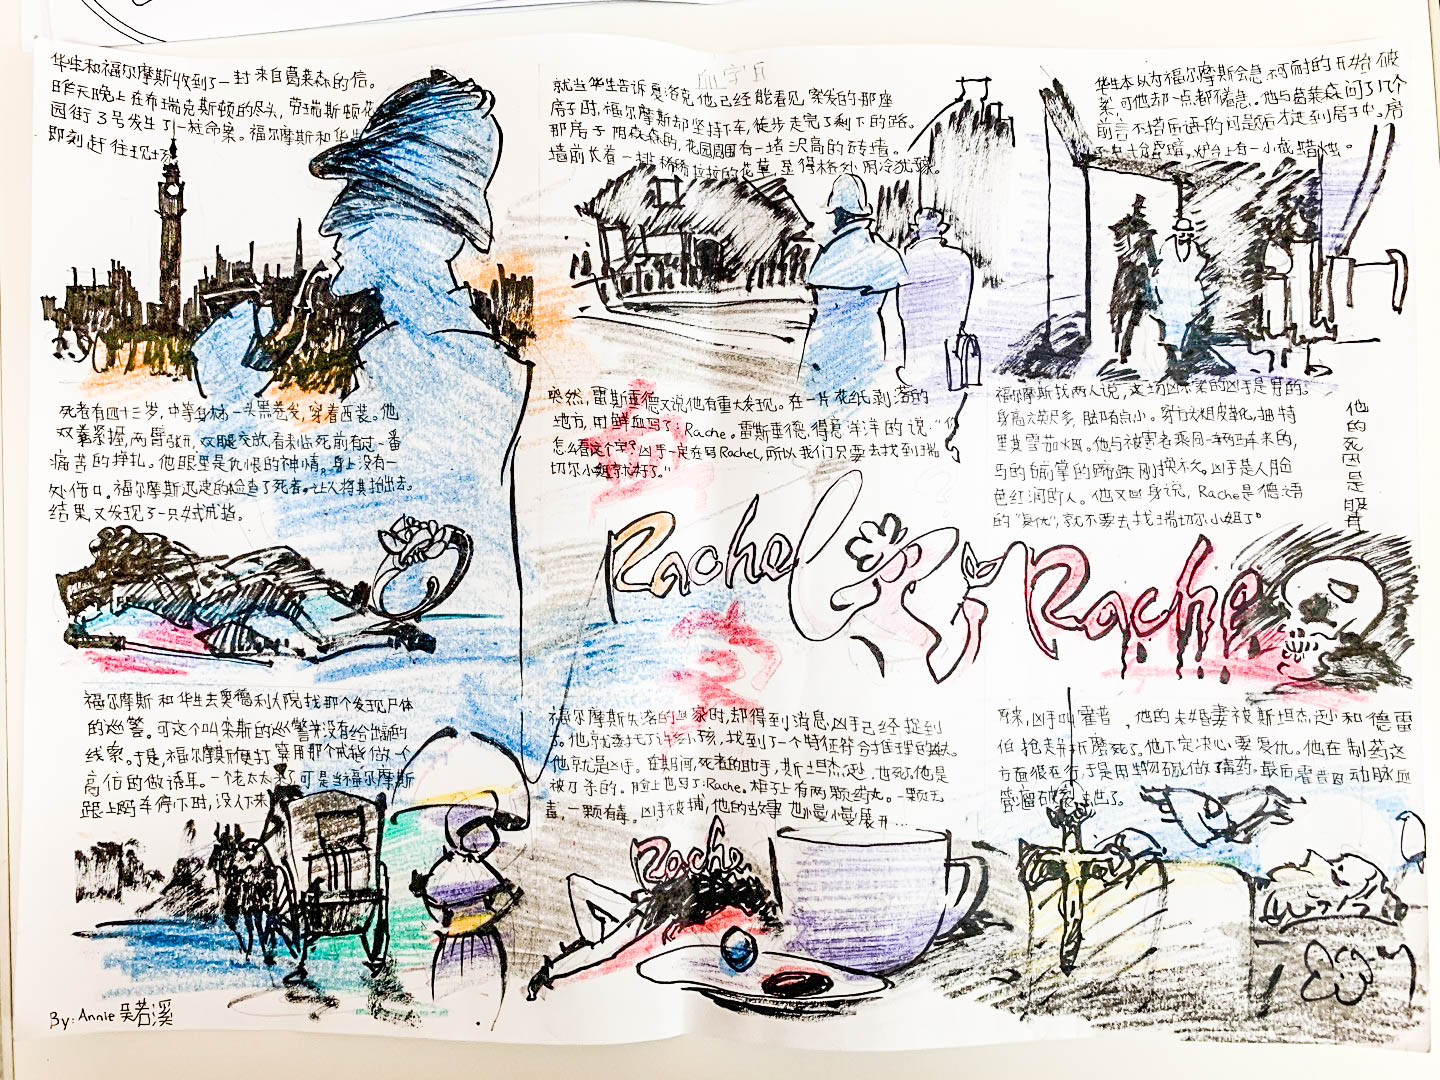 华生和福尔摩斯收到了一封来自葛莱森的信。
昨天晚上在布瑞克斯顿的尽头，劳瑞斯顿花
园街3号发生了一桩命案。福尔摩斯和华生
即刻赶往现场
血字
就当华生告诉夏洛克他已经能看见案发的那座
房子时，福尔摩斯却坚持下车，徒步走完了剩下的路。
那房子阴森森的，花园周围有一堵沢高的砖墙。
墙前长着一排稀稀拉拉的花草，显得格外阴冷犹豫。
华生本以为福尔摩斯会急不可耐的开始破
案可他却一点都不着急。他与葛莱森问了几个
前言不搭后语的问题后才走到房子中。房
子中十分昏暗，炉台上有一小截蜡烛。
死者有四十三岁，中等身材一头黑卷发，穿着西装。他
双拳紧握，两臂张开，双腿交放，看来临死前有过一番
痛苦的挣扎。他眼里是仇恨的神情。身上没有一
处伤口。福尔摩斯迅速的检查了死者。让人将其抬出去。
结果又发现了一只女式戒指。
突然，雷斯垂德又说他有重大发现。在一片花纸剥落的
地方，用鲜血写了：Rache。雷斯垂德得意洋洋的说，“你
怎么看这个字？凶手一定在写Rachel，所以我们只要去找到瑞
切尔小姐就好了。”
福尔摩斯找两人说，这场凶杀案的凶手是男的。
身高六英尺多，脚有点小。穿方头粗皮靴，抽特
里其雪茄烟。他与被害者乘同一辆马车来的，
马的前掌的蹄铁刚换不久。凶手是人脸
色红润的人。他又回身说，Rache是德语
的“复仇”，就不要去找瑞切尔小姐了。
他的死因是服毒
血
字
Rachel
Rache
福尔摩斯和华生去奥德利大院找那个发现尸体
的巡警。可这个叫栾斯的巡警并没有给出新的
线索。于是，福尔摩斯便打算用那个戒指做一个
高仿的做诱耳。一老太太来了可是当福尔摩斯
跟上的马车停下时，没人下来
福尔摩斯失落的回家时，却得到消息凶手已经捉到
了。他就委托了许红小孩，找到了一个特征符合推理的
他就是凶手。在其间，死者的助手，斯坦杰逊，也死了他是
被刀杀的。脸上也写了：Rache。柜子上有两颗药丸。一颗无
毒，一颗有毒。凶手被捕，他的故事也慢慢展开...
Rache
原来，凶手叫霍普，他的未婚妻被斯坦杰逊和德雷
伯抢走折磨死了。他下定决心要复仇。他在制药这
方面很在行，于是用生物碱做了毒药。最后霍普因动脉血
管瘤破裂去世了。
By: Annie 吴若溪